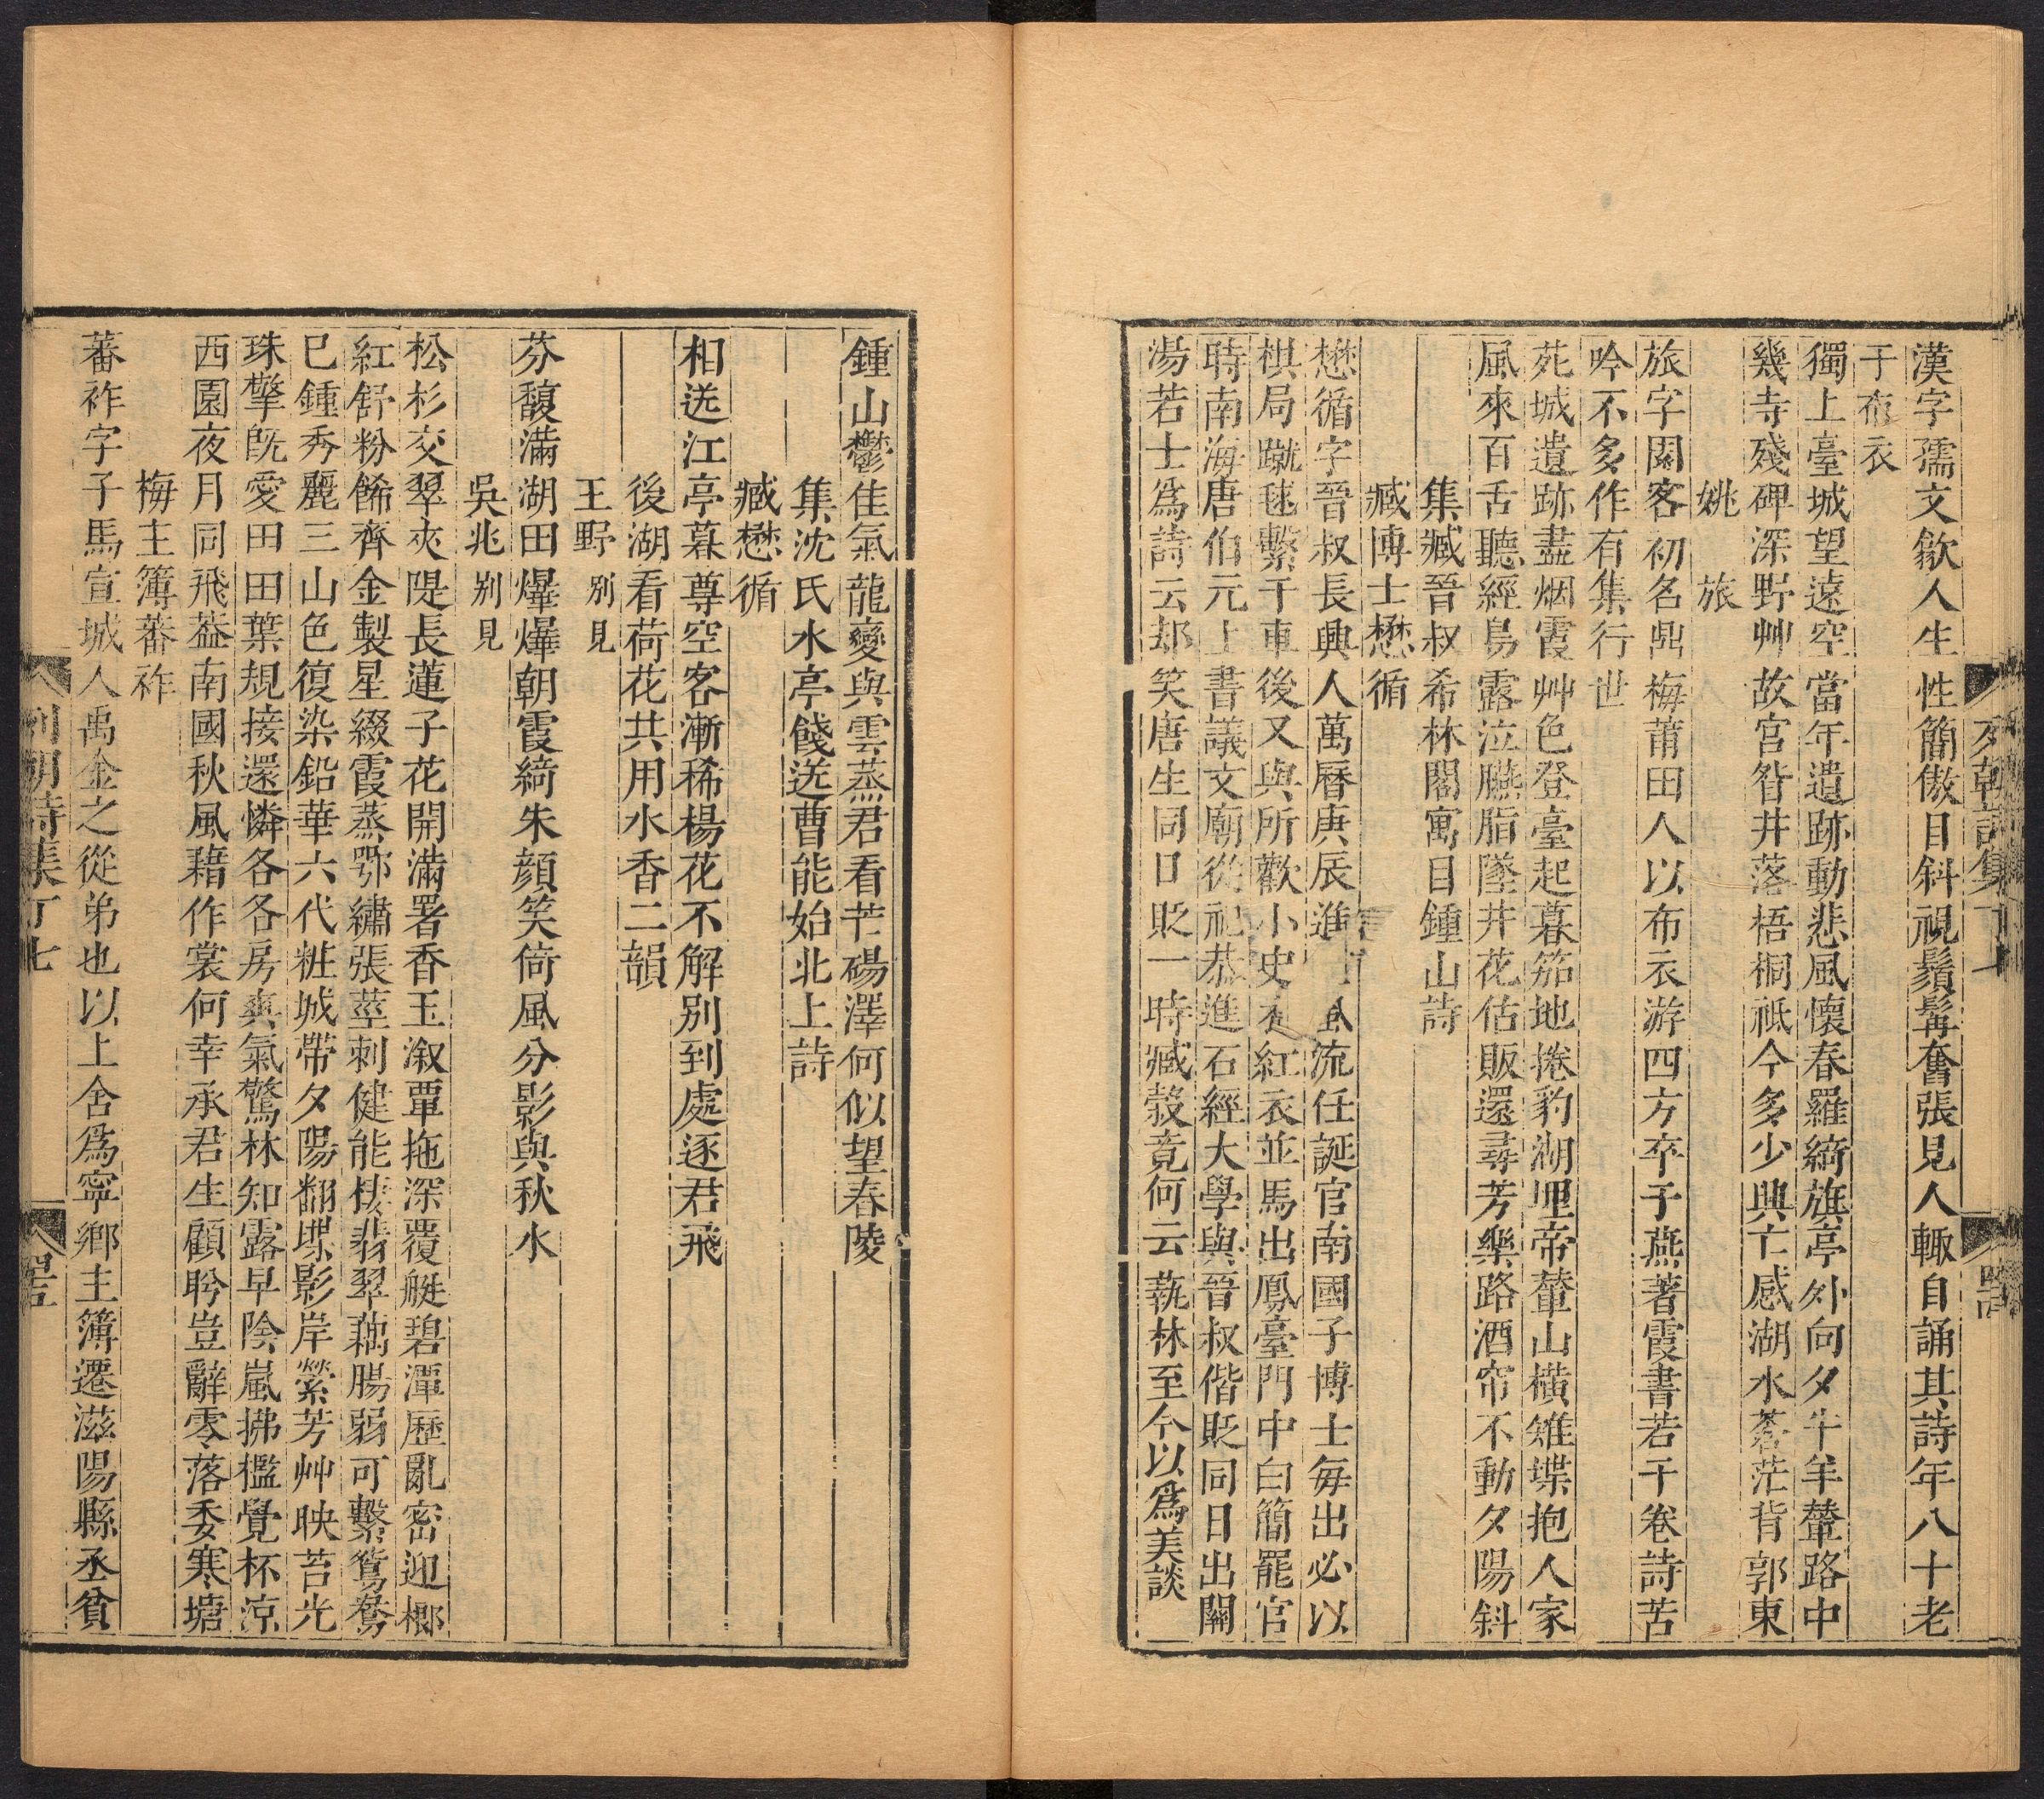 漢字孺文歙人生性簡傲目斜視鬚髯奮張見人輙自誦其詩年八十老
于布衣
獨上臺城望遠空當年遺跡動悲風懷春羅綺旗亭外向夕牛羊輦路中
幾寺殘碑深野艸故宮眢井落梧桐祇今多少興亡感湖水蒼茫背郭東
姚旅
旅字園客初名鼎梅莆田人以布衣游四方卒于燕著露書若干卷詩苦
吟不多作有集行世
苑城遺跡盡烟霞艸色登臺起暮笳地捲豹湖埋帝輦山橫雉堞抱人家
風來百舌聽經鳥露泣臙脂墜井花估販還尋芳樂路酒帘不動夕陽斜
集臧晉叔希林閣寓目鍾山詩
臧博士懋循
懋循字晉叔長興人萬曆庚辰進風流任誕官南國子博士每出必以
棋局蹴毬繫于車後又與所歡小史衣紅衣並馬出鳳臺門中白簡罷官
時南海唐伯元上書議文廟從祀恭進石經大學與晉叔偕貶同日出關
湯若士爲詩云却笑唐生同日貶一時臧穀竟何云蓺林至今以爲美談
列朝詩集丁七
鍾山鬱佳氣龍變與雲蒸君看芒碭澤何似望春陵
集沈氏水亭餞送曹能始北上詩
臧懋循
相送江亭暮尊空客漸稀楊花不解別到處逐君飛
後湖看荷花共用水香二韻
王野別見
芬馥滿湖田爗爗朝霞綺朱顔笑倚風分影與秋水
吳兆別見
松杉交翠夾隄長蓮子花開滿署香玉溆覃拖深覆艇碧潭歷亂密迎榔
紅舒粉餙齊金製星綴霞蒸鄂繡張莖刺健能棲翡翠藕腸弱可繫鴛鴦
巳鍾秀麗三山色復染鉛華六代粧城帶夕陽翻堞影岸縈芳艸映苔光
珠擎旣愛田田葉規接還憐各各房爽氣驚林知露早陰嵐拂檻覺杯凉
西園夜月同飛葢南國秋風藉作裳何幸承君生顧盻豈辭零落委寒塘
梅主簿蕃祚
蕃祚字子馬宣城人禹金之從弟也以上舍爲寧鄉主簿遷滋陽縣丞貧
列朝詩集丁七